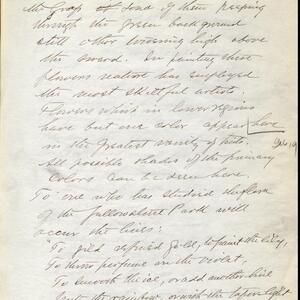 the Grass of them peeping
through the green back ground
still other towering high above
the sward. In painting these
flowers nature has employed
the most skillful artists.
Flowers which in lower regions
have but one color appear here
in the greatest variety of tints.
All possible shades of the primary
colors can be seen here.
To one who has studied the flora
of the Yellowstone Park will
occur the lines:
"To gild refined gold, to paint the lily,
To throw perfume on the violet,
To smooth the ice, or add another hue
unto the rainbow, or with the taper light